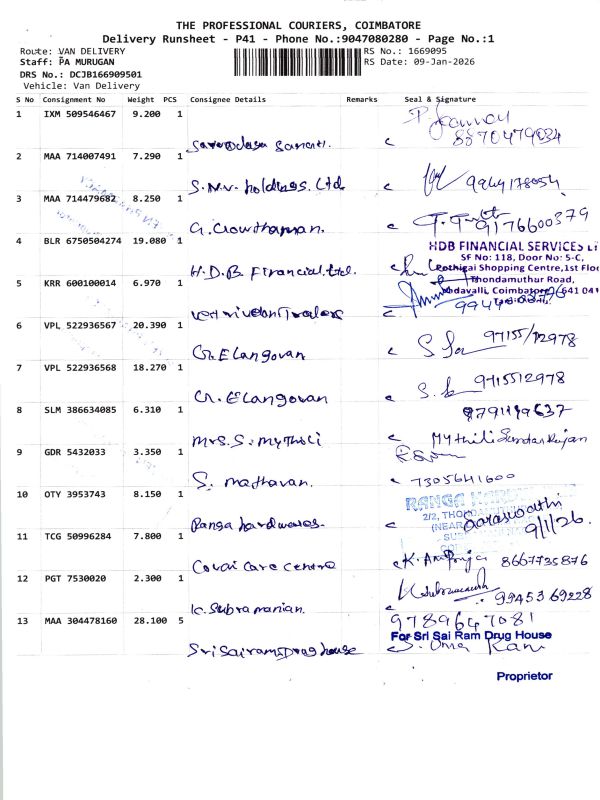 THE PROFESSIONAL COURIERS, COIMBATORE
Delivery Runsheet - P41 - Phone No.:9047080280 - Page No.:1
Route: VAN DELIVERY
RS No.: 1669095
Staff: PA MURUGAN
RS Date: 09-Jan-2026
DRS No.: DCJB166909501
Vehicle: Van Delivery
S No Consignment No Weight PCS Consignee Details Remarks Seal & Signature
1 IXM 509546467 9.200 1
8870479034
2 MAA 714007491 7.290 1
S.N.V. holdings. Ltd.
3 MAA 714479682 8.250 1
G. Gowthaman. 9176600379
4 BLR 6750504274 19.080 1
HDB FINANCIAL SERVICES
SF No: 118, Door No: 5-C,
Shopping Centre,1st Floo
H.D.B Financial.Ltd.
Thondamuthur Road,
5 KRR 600100014 6.970 1
Coimbatore 641 041
vetrivelan Traders
6 VPL 522936567 20.390 1
G. Elangovan 97155/12978
7 VPL 522936568 18.270 1
G. Elangovan 9715512978
8 SLM 386634085 6.310 1
8791149637
Mrs.S. Mythili
9 GDR 5432033 3.350 1
S. Mathavan. 7305641600
10 OTY 3953743 8.150 1
RANGA
2/2,
(NEAR
Ranga hardwares. Saraswathi 9/1/26.
11 TCG 50996284 7.800 1
Covai Care centre 8667735876
12 PGT 7530020 2.300 1
K. Subramanian. 9945369228
13 MAA 304478160 28.100 5
9789647081
For Sri Sai Ram Drug House
Sri Sairam Drug house S. Uma Rani
Proprietor